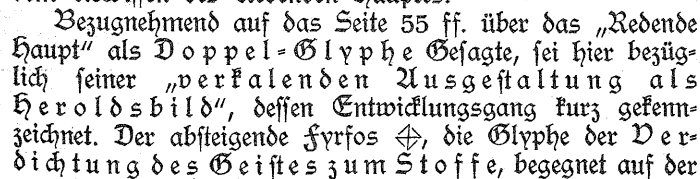 Bezugnehmend auf das Seite 55 ff. über das „Redende
Haupt“ als Doppel-Glyphe Gesagte, sei hier bezüg-
lich seiner „verkalenden Ausgestaltung als
Heroldsbild“, dessen Entwicklungsgang kurz gekenn-
zeichnet. Der absteigende Fyrfos, die Glyphe der Ver-
dichtung des Geistes zum Stoffe, begegnet auf der